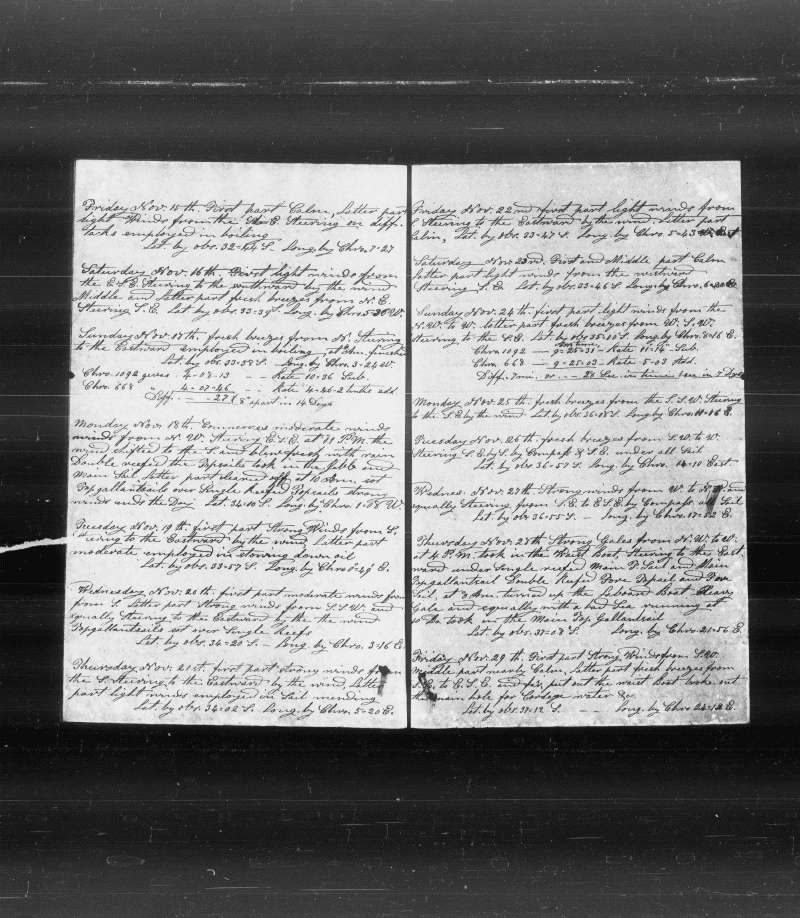 Friday Nov. 15th. First part Calm, Latter part
light Winds from the E. Steering on diff.
tacks employed in boiling
Lat. by obs. 32-54 S. Long. by Chro. 7-27
Saturday Nov. 16th. First light winds from
the E.S.E. Steering to the southward by the wind
Middle and latter part fresh breezes from N. E.
Steering S. E. Lat by obs. 33-39 S. Long. by Chro. 5-36 W.
Sunday Nov. 17th. fresh breezes from N. Steering
to the Eastward employed in boiling, at Am. finished
Lat. by obs. 33-58 S. Long. by Chro. 3-24 W.
Chro. 1092 gives 4-08-13 — Rate 10-36 Sub.
Chro. 668 " 4-07-46 - - Rate 4-46-2 tenths add
Diff. — — 27 (8" apart in 14 Days
Monday Nov. 18th. Commences moderate winds
winds from N. W. Steering E.S.E. at 11 P.M. the
wind shifted to the S. and blew fresh with rain
Double reefed the Topsails took in the Jibb and
Main Sail latter part cleared off, at 10 Am. set
Topgallantsails over Single Reefed Topsails strong
winds ends the Day. Lat. 34-10 S. Long. by Chro. 1-08 W.
Tuesday Nov. 19th. first part Strong Winds from S.
Steering to the Eastward by the wind, Latter part
moderate employed in stowing down oil
Lat. by obs. 33-57 S. Long. by Chro. 0-29 E.
Wednesday Nov. 20th. first part moderate winds from
from S. Latter part Strong winds from S.S.W. and
squally Steering to the Eastward by the the wind
Topgallantsails set over Single Reefs
Lat. by obs. 34-20 S. — Long. by Chro. 3-16 E.
Thursday Nov. 21st. first part strong winds from
the S. Steering to the Eastward by the wind, Latter
part light winds employed in Sail mending
Lat. by obs. 34-02 S. Long. by Chro. 5-20 E.
Friday Nov. 22nd. first part light winds from
S. Steering to the Eastward by the wind. Latter part
Calm, Lat. by obs. 33-47 S. Long. by Chro. 5-43 East
Saturday Nov 23rd. First and Middle part Calm
Latter part light winds from the westward
Steering S. E. Lat. by obs. 33-46 S. Long. by Chro. 6-20 E.
Sunday Nov. 24th. first part light winds from the
N. W. to W. latter part fresh breezes from W. S. W.
Steering to the S.E. Lat. by obs. 35-10 S. Long. by Chro. 8-16 E.
Chro. 1092 — 9-25-31 — Rate 11-14 Sub.
Chro. 668 — 9-25-03 — Rate 5-03 Add.
Diff. - - 28 Sec in time 1 sec in 7 Days
Monday Nov. 25th. fresh breezes from the S.S.W. Steering
to the S.E by the wind. Lat. by obs. 36-18 S. Long. by Chro. 11-16 E.
Tuesday Nov. 26th. fresh breezes from S. W. to W.
Steering S. E. by S. by Compass & S.E. under all Sail
Lat. by obs. 36-57 S. Long. by Chro. 14-10 East.
Wednes. Nov. 27th. Strong winds from W. to and
squally Steering from S. E. to E. S. E. by Compass all Sail
Lat. by obs. 36-55 S. — Long. by Chro. 17-52 E.
Thursday Nov. 28th. Strong Gales from N. W. to W.
at 4 P.M. took in the Waist Boat Steering to the East
ward under Single reefed Main T. Sail and Main
Topgallantsail Double Reefed Fore Topsail and Fore
Sail, at 3 Am. turned up the Laboard Boat Heavy
Gale and squally with a bad Sea running at
10 Do. took in the Main Top Gallantsail
Lat. by obs. 37-03 S. Long. by Chro. 21-56 E.
Friday Nov. 29th. First part Strong Winds from S.W.
Middle part nearly Calm, Latter part fresh breezes from
S.E. to E.S.E. and fair, put out the waist Boat broke out
the main hole for Cordage water &c.
Lat. by obs. 37-12 S. — — Long. by Chro. 24-12 E.